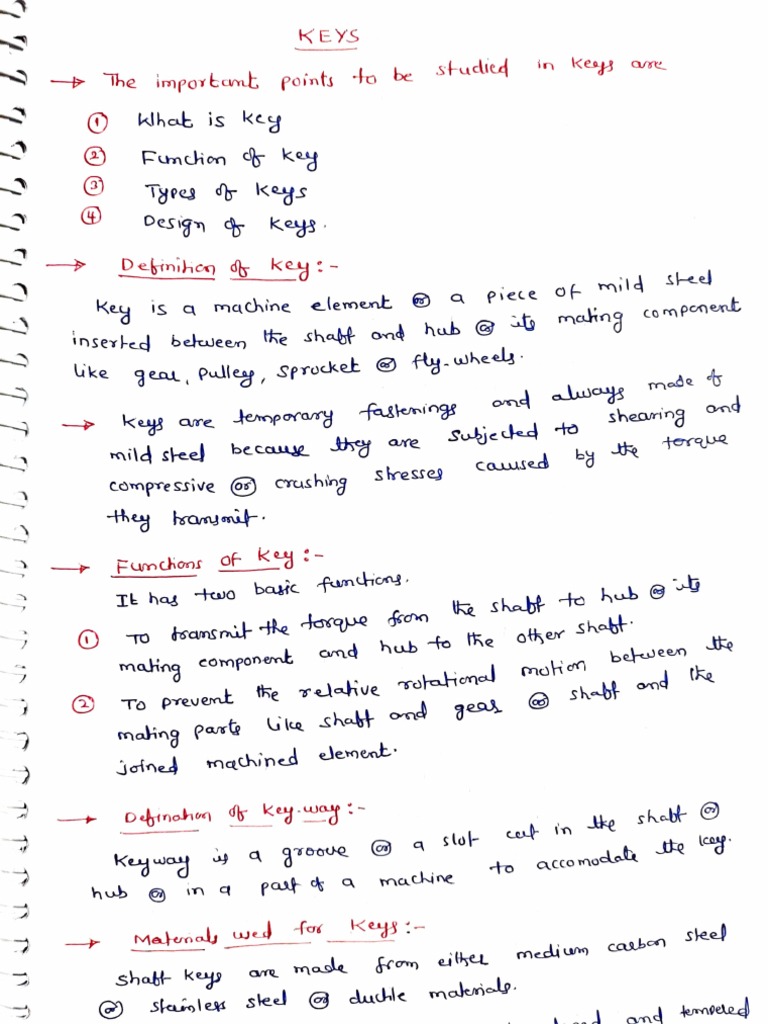 KEYS
→ The important points to be studied in keys are
① What is key
② Function of key
③ Types of keys
④ Design of keys.
→ Definition of key:-
Key is a machine element or a piece of mild steel
inserted between the shaft and hub or its mating component
like gear, pulley, sprocket or fly-wheels.
→ Keys are temporary fastenings and always made of
mild steel because they are subjected to shearing and
compressive or crushing stresses caused by the torque
they transmit.
→ Functions of key:-
It has two basic functions.
① To transmit the torque from the shaft to hub or its
mating component and hub to the other shaft.
② To prevent the relative rotational motion between the
mating parts like shaft and gear or shaft and the
joined machined element.
→ Defination of key-way:-
Keyway is a groove or a slot cut in the shaft or
hub or in a part of a machine to accomodate the key.
→ Materials used for keys:-
Shaft keys are made from either medium carbon steel
or stainless steel or ductile materials.
and tempered